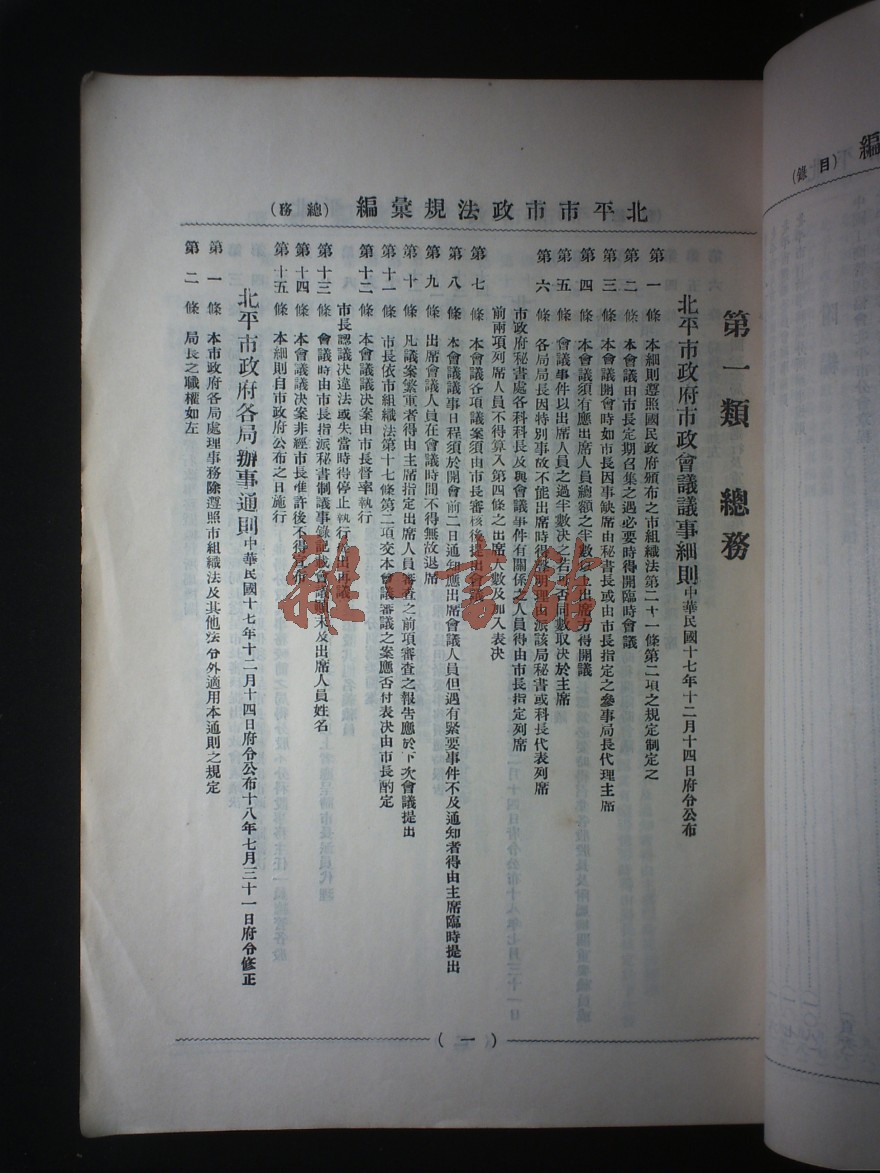 北平市市政法規彙編 (總務)
第一類 總務
北平市政府市政會議議事細則 中華民國十七年十二月十四日府令公布
第一條 本細則遵照國民政府頒布之市組織法第二十一條第二項之規定制定之
第二條 本會議由市長定期召集之遇必要時得開臨時會議
第三條 本會議開會時如市長因事缺席由秘書長或由市長指定之參事局長代理主席
第四條 本會議須有應出席人員總額之半數以上出席方得開議
第五條 會議事件以出席人員之過半數決之若可否同數取決於主席
第六條 各局局長因特別事故不能出席時得聲明理由派該局秘書或科長代表列席
市政府秘書處各科科長及與會議事件有關係之人員得由市長指定列席
前兩項列席人員不得算入第四條之出席人數及加入表決
第七條 本會議各項議案須由市長審核後提出會議
第八條 本會議議事日程須於開會前二日通知應出席會議人員但遇有緊要事件不及通知者得由主席臨時提出
第九條 出席會議人員在會議時間不得無故退席
第十條 凡議案繁重者得由主席指定出席人員審查之前項審查之報告應於下次會議提出
第十一條 市長依市組織法第十七條第二項交本會議審議之案應否付表決由市長酌定
第十二條 本會議議決案由市長督率執行
市長認議決違法或失當時得停止執行提出再議
第十三條 會議時由市長指派秘書制議事錄記載會議顛末及出席人員姓名
第十四條 本會議議決案非經市長准許後不得宣布
第十五條 本細則自市政府公布之日施行
北平市政府各局辦事通則 中華民國十七年十二月十四日府令公布十八年七月三十一日府令修正
第一條 本市政府各局處理事務除遵照市組織法及其他法令外適用本通則之規定
第二條 局長之職權如左
(一)
編
(目錄)